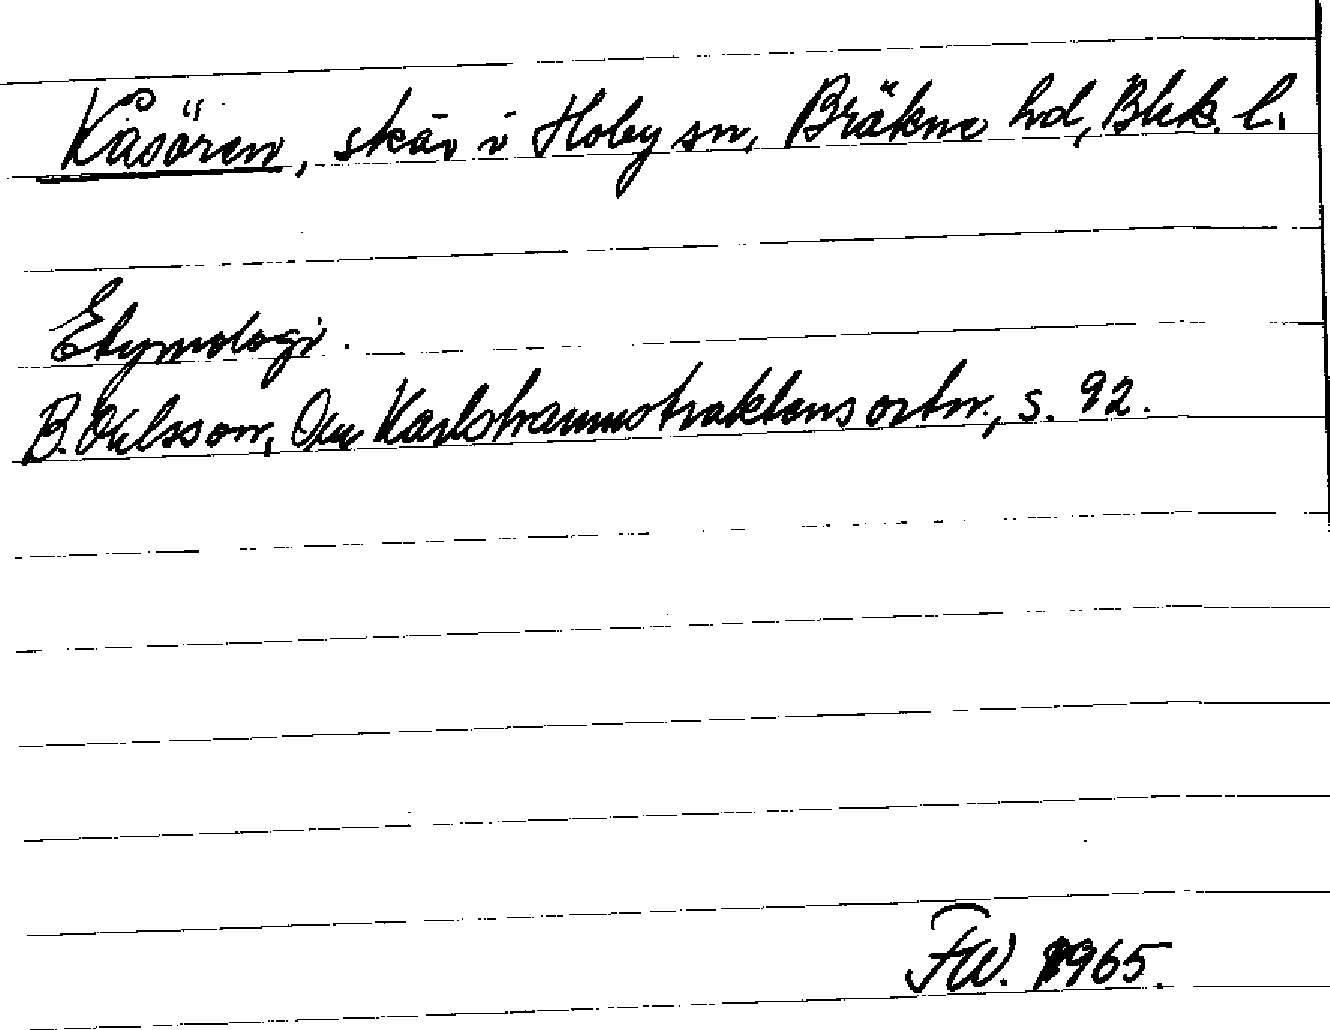 Kåsören, skär i Hoby sn, Bräkne hd, Blek. l.
Etymologi.
B. Ohlsson, Om Karlshamnstraktens ortn., s. 92.
FW. 1965.